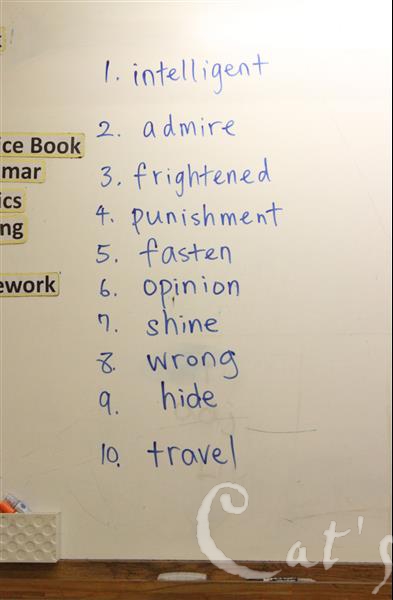 ice Book
mar
ics
ng
ework
1. intelligent
2. admire
3. frightened
4. punishment
5. fasten
6. opinion
7. shine
8. wrong
9. hide
10. travel
Cat's